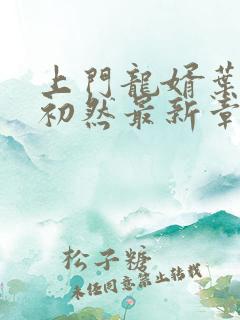 上門龍婿葉
初然最新章
松子糖
未經同意禁止轉載